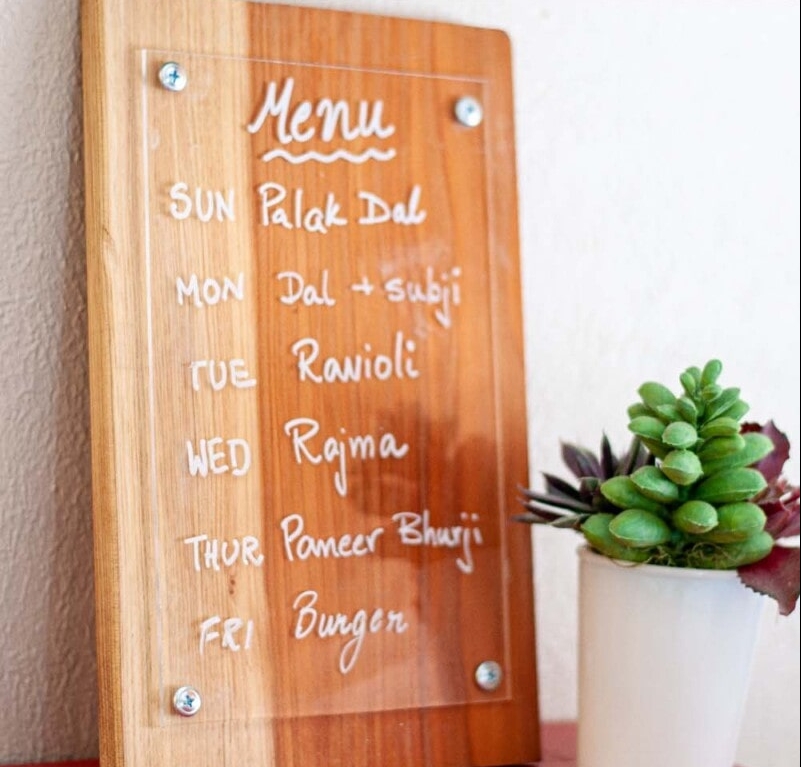 Menu
SUN Palak Dal
MON Dal + subji
TUE Ravioli
WED Rajma
THUR Paneer Bhurji
FRI Burger